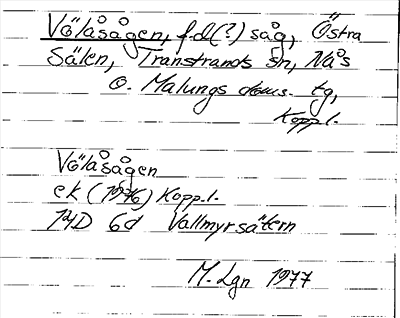 Völåsågen, f.d(?) såg, Östra
Sälen, Transtrands sn, Nås
o. Malungs doms. tg,
Kopp.l.
Völåsågen
ek (1976) Kopp.l.
14D 6d Vallmyrsätern
M. Lgn 1977